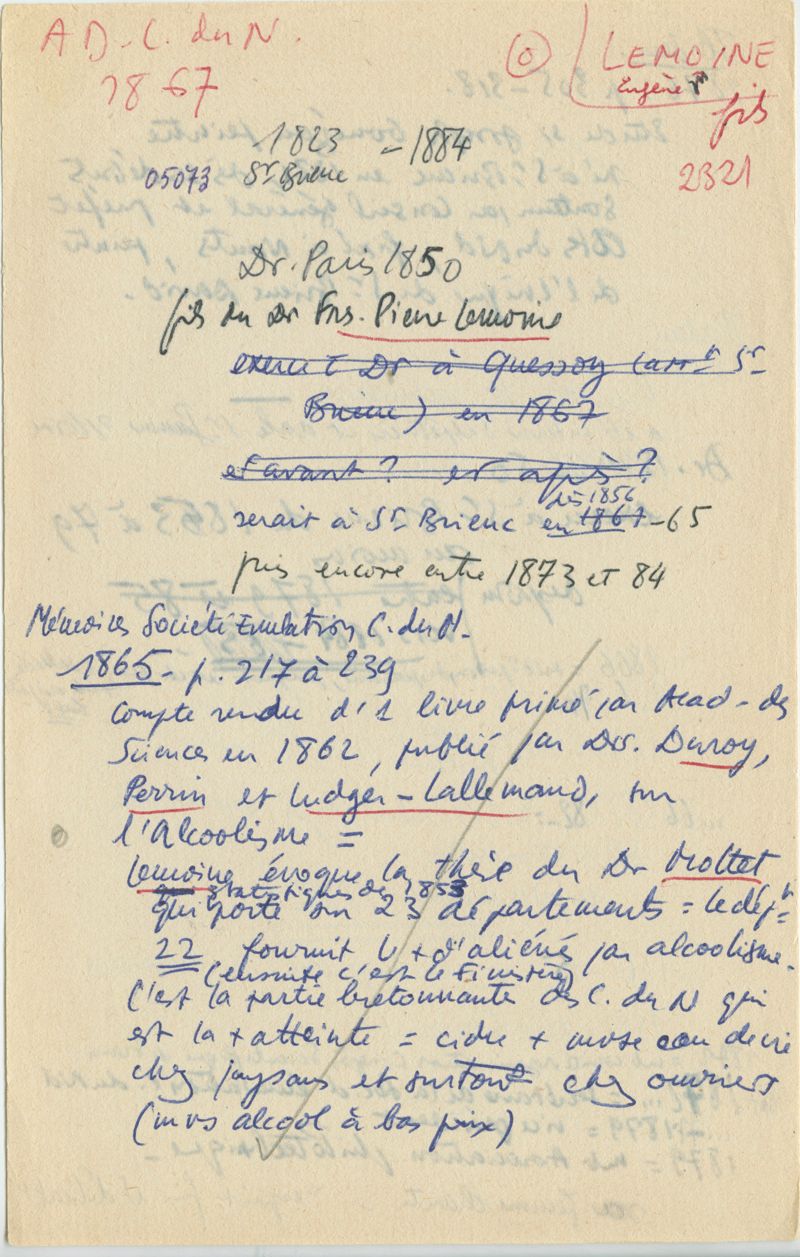 AD-C. du N.
1867
LEMOINE
Eugène
fils
2321
1823 - 1884
05073 St Brieuc
Dr. Paris 1850
fils du Dr Frs. Pierre Lemoine
exerce Dr à Quessoy (arrt St
Brieuc) en 1867
et avant? et après?
dès 1856
serait à St Brieuc en 1867-65
puis encore entre 1873 et 84
Mémoires Société Emulation C. du N.
1865 - p. 217 à 239
Compte rendu d'1 livre primé par Acad- des
Sciences en 1862, publié par Drs. Duroy,
Perrin et Ludger-Lallemand, sur
l'Alcoolisme =
Lemoine évoque la thèse du Dr Mottet
statistiques de 1853
qui porte sur 23 départements = le dépt
22 fournit le + d'aliénés par alcoolisme.
(ensuite c'est le Finistère)
C'est la partie bretonnante des C. du N qui
est la + atteinte = cidre + eau de vie
chez paysans et surtout chez ouvriers
(mvs alcool à bas prix)